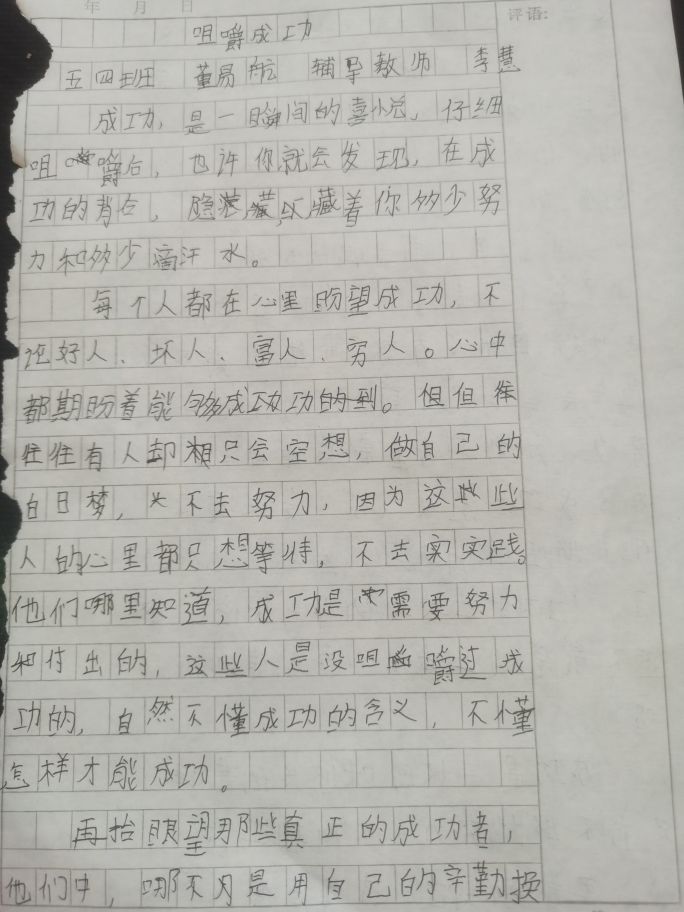 年 月 日
评语:
咀嚼成功
五四班 董易航 辅导教师 李慧
成功，是一瞬间的喜悦，仔细
咀嚼后，也许你就会发现，在成
功的背后，隐藏着你多少努
力和多少滴汗水。
每个人都在心里盼望成功，不
论好人、坏人、富人、穷人。心中
都期盼着能够成功的到。但往
往有人却只会空想，做自己的
白日梦，不去努力，因为这些
人的心里都只想等待，不去实践。
他们哪里知道，成功是需要努力
和付出的，这些人是没咀嚼过成
功的，自然不懂成功的含义，不懂
怎样才能成功。
再抬眼望那些真正的成功者，
他们中，哪不是用自己的辛勤换